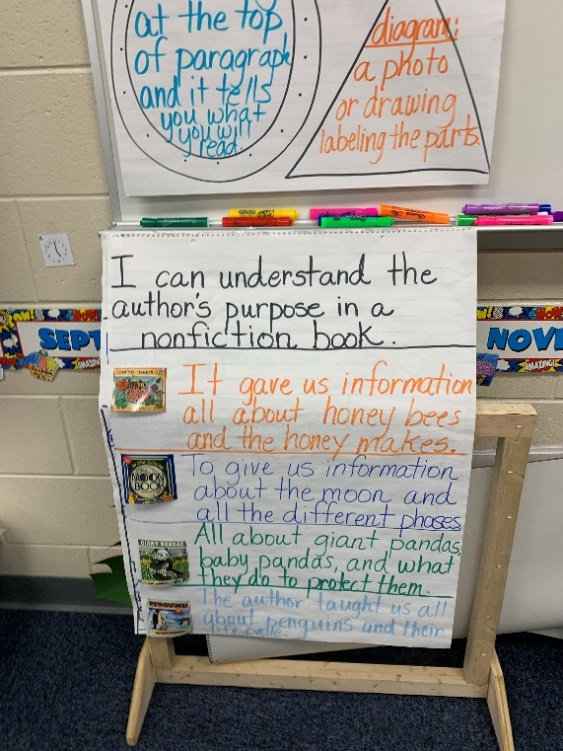 at the top
of paragraph
and it tells
you what
you will
read.
diagram:
a photo
or drawing
labeling the parts.
I can understand the
author's purpose in a
nonfiction book.
It gave us information
all about honey bees
and the honey makes.
To give us information
about the moon and
all the different phases
All about giant pandas,
baby pandas, and what
they do to protect them.
The author taught us all
about penguins and their
life cycle.
SEPT
NOVE
THE
MOON
BOOK
GIANT PANDAS
PENGUINS
WOW
AMAZING!